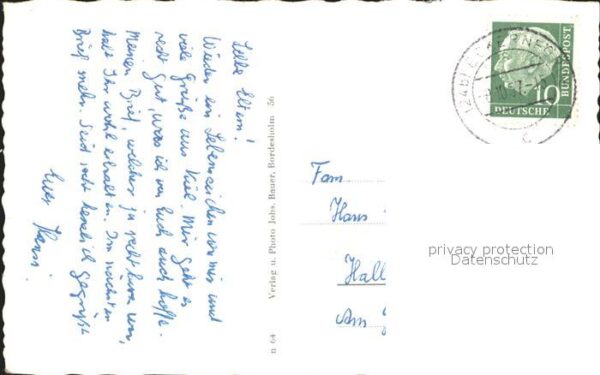 Liebe Eltern!
Wieder ein Lebenszeichen von mir und
viele Grüße aus Kiel. Mir geht es
recht gut, was ich von Euch auch hoffe.
Meinen Brief, welcher ja recht kurz war,
habt Ihr wohl erhalten. Im nächsten
Brief mehr. Seid recht herzlich gegrüßt
Euer Hansi.
n 64 Verlag u. Photo Johs. Bauer, Bordesholm 56
DEUTSCHE
BUNDESPOST
10
Fam
Hans
Hall
Am
privacy protection
Datenschutz